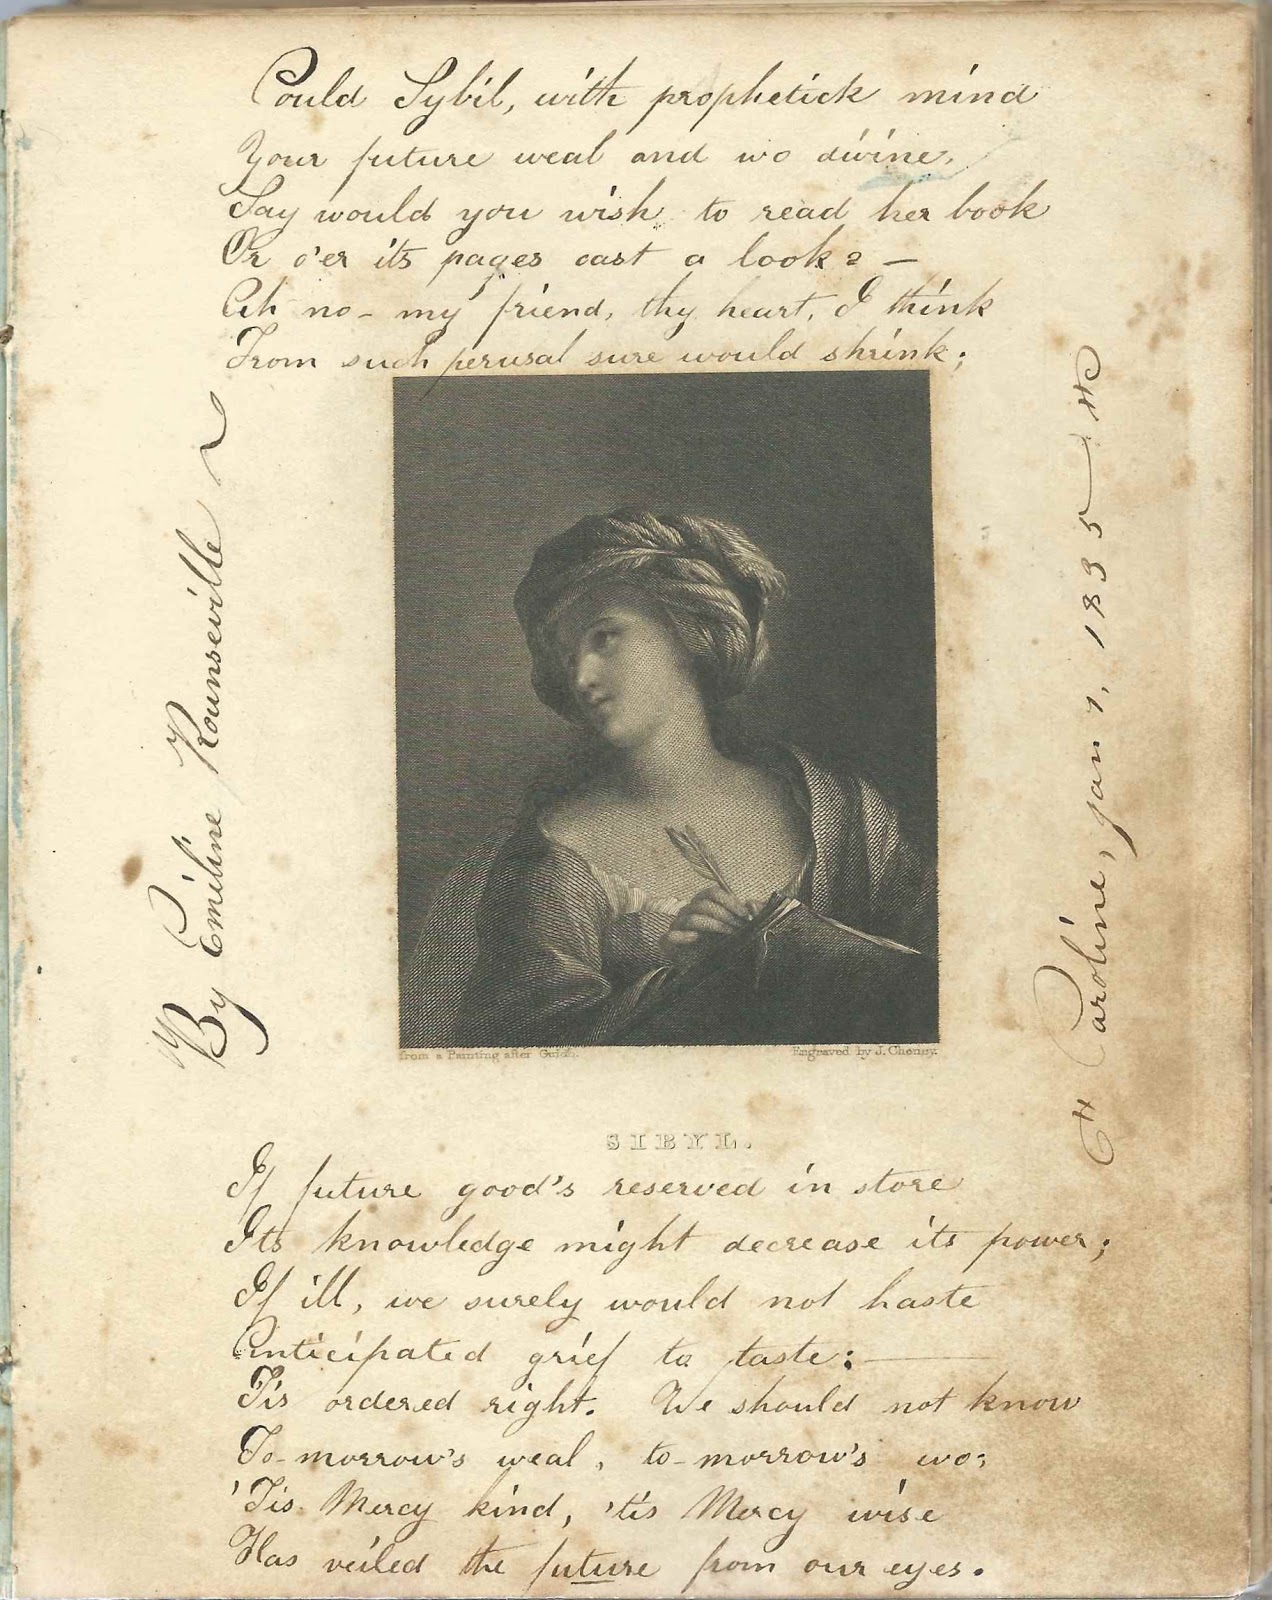 Could Sybil, with prophetick mind
Your future weal and wo divine,
Say would you wish to read her book
Or o'er its pages cast a look? —
Ah no - my friend, thy heart, I think
From such perusal sure would shrink;
By Emiline Rounseville
Caroline, Jan 7, 1835
from a Painting after Guido.
Engraved by J. Cheney.
SIBYL.
If future good's reserved in store
Its knowledge might decrease its power;
If ill, we surely would not haste
Anticipated grief to taste: —
Tis ordered right. We should not know
To-morrow's weal, to-morrow's wo;
'Tis Mercy kind, 'tis Mercy wise
Has veiled the future from our eyes.